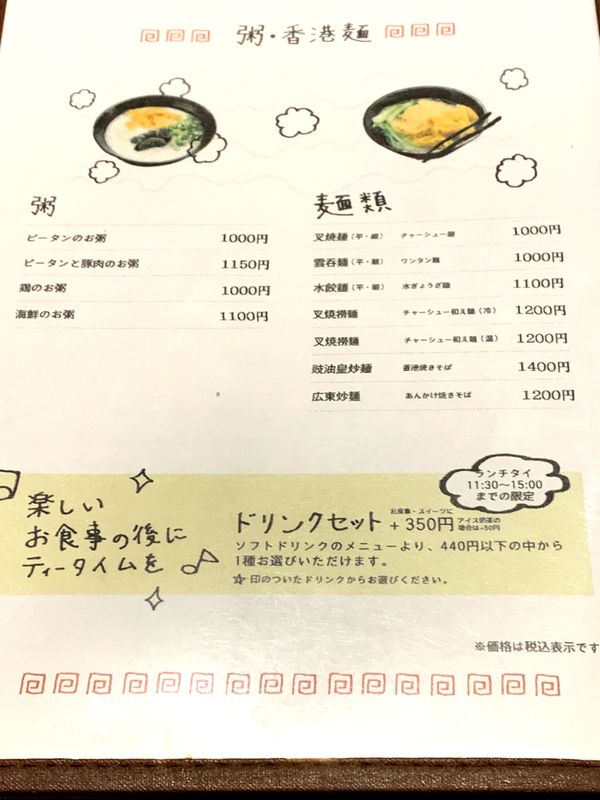 粥・香港麺
粥
ピータンのお粥 1000円
ピータンと豚肉のお粥 1150円
鶏のお粥 1000円
海鮮のお粥 1100円
麺類
叉焼麺（平・細） チャーシュー麺 1000円
雲呑麺（平・細） ワンタン麺 1000円
水餃麺（平・細） 水ぎょうざ麺 1100円
叉焼撈麺 チャーシュー和え麺（冷） 1200円
叉焼撈麺 チャーシュー和え麺（温） 1200円
豉油皇炒麺 香港焼きそば 1400円
広東炒麺 あんかけ焼きそば 1200円
ランチタイ
11:30～15:00
までの限定
楽しい
お食事の後に
ティータイムを
ドリンクセット
お食事・スイーツに
+350円
アイス奶茶の
場合は+50円
ソフトドリンクのメニューより、440円以下の中から
1種お選びいただけます。
☆印のついたドリンクからお選びください。
※価格は税込表示です